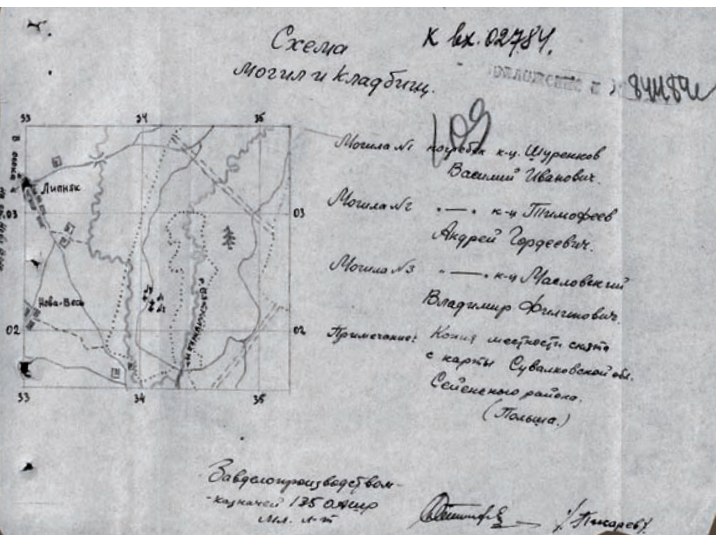 Схема
могил и кладбищ.
К вх. 02784.
109
33
34
35
Липняк
03
03
Нова-Весь
02
02
33
34
35
Могила №1 погребен к-ц. Шуренков
Василий Иванович.
Могила №2 " — " к-ц Тимофеев
Андрей Гордеевич.
Могила №3 " — " к-ц Масловский
Владимир Филипович.
Примечание: Копия местности снята
с карты Сувалковской обл.
Сейненского района.
(Польша.)
Завделопроизводством-
-казначей 135
мл. л-т
/Пикарев/.